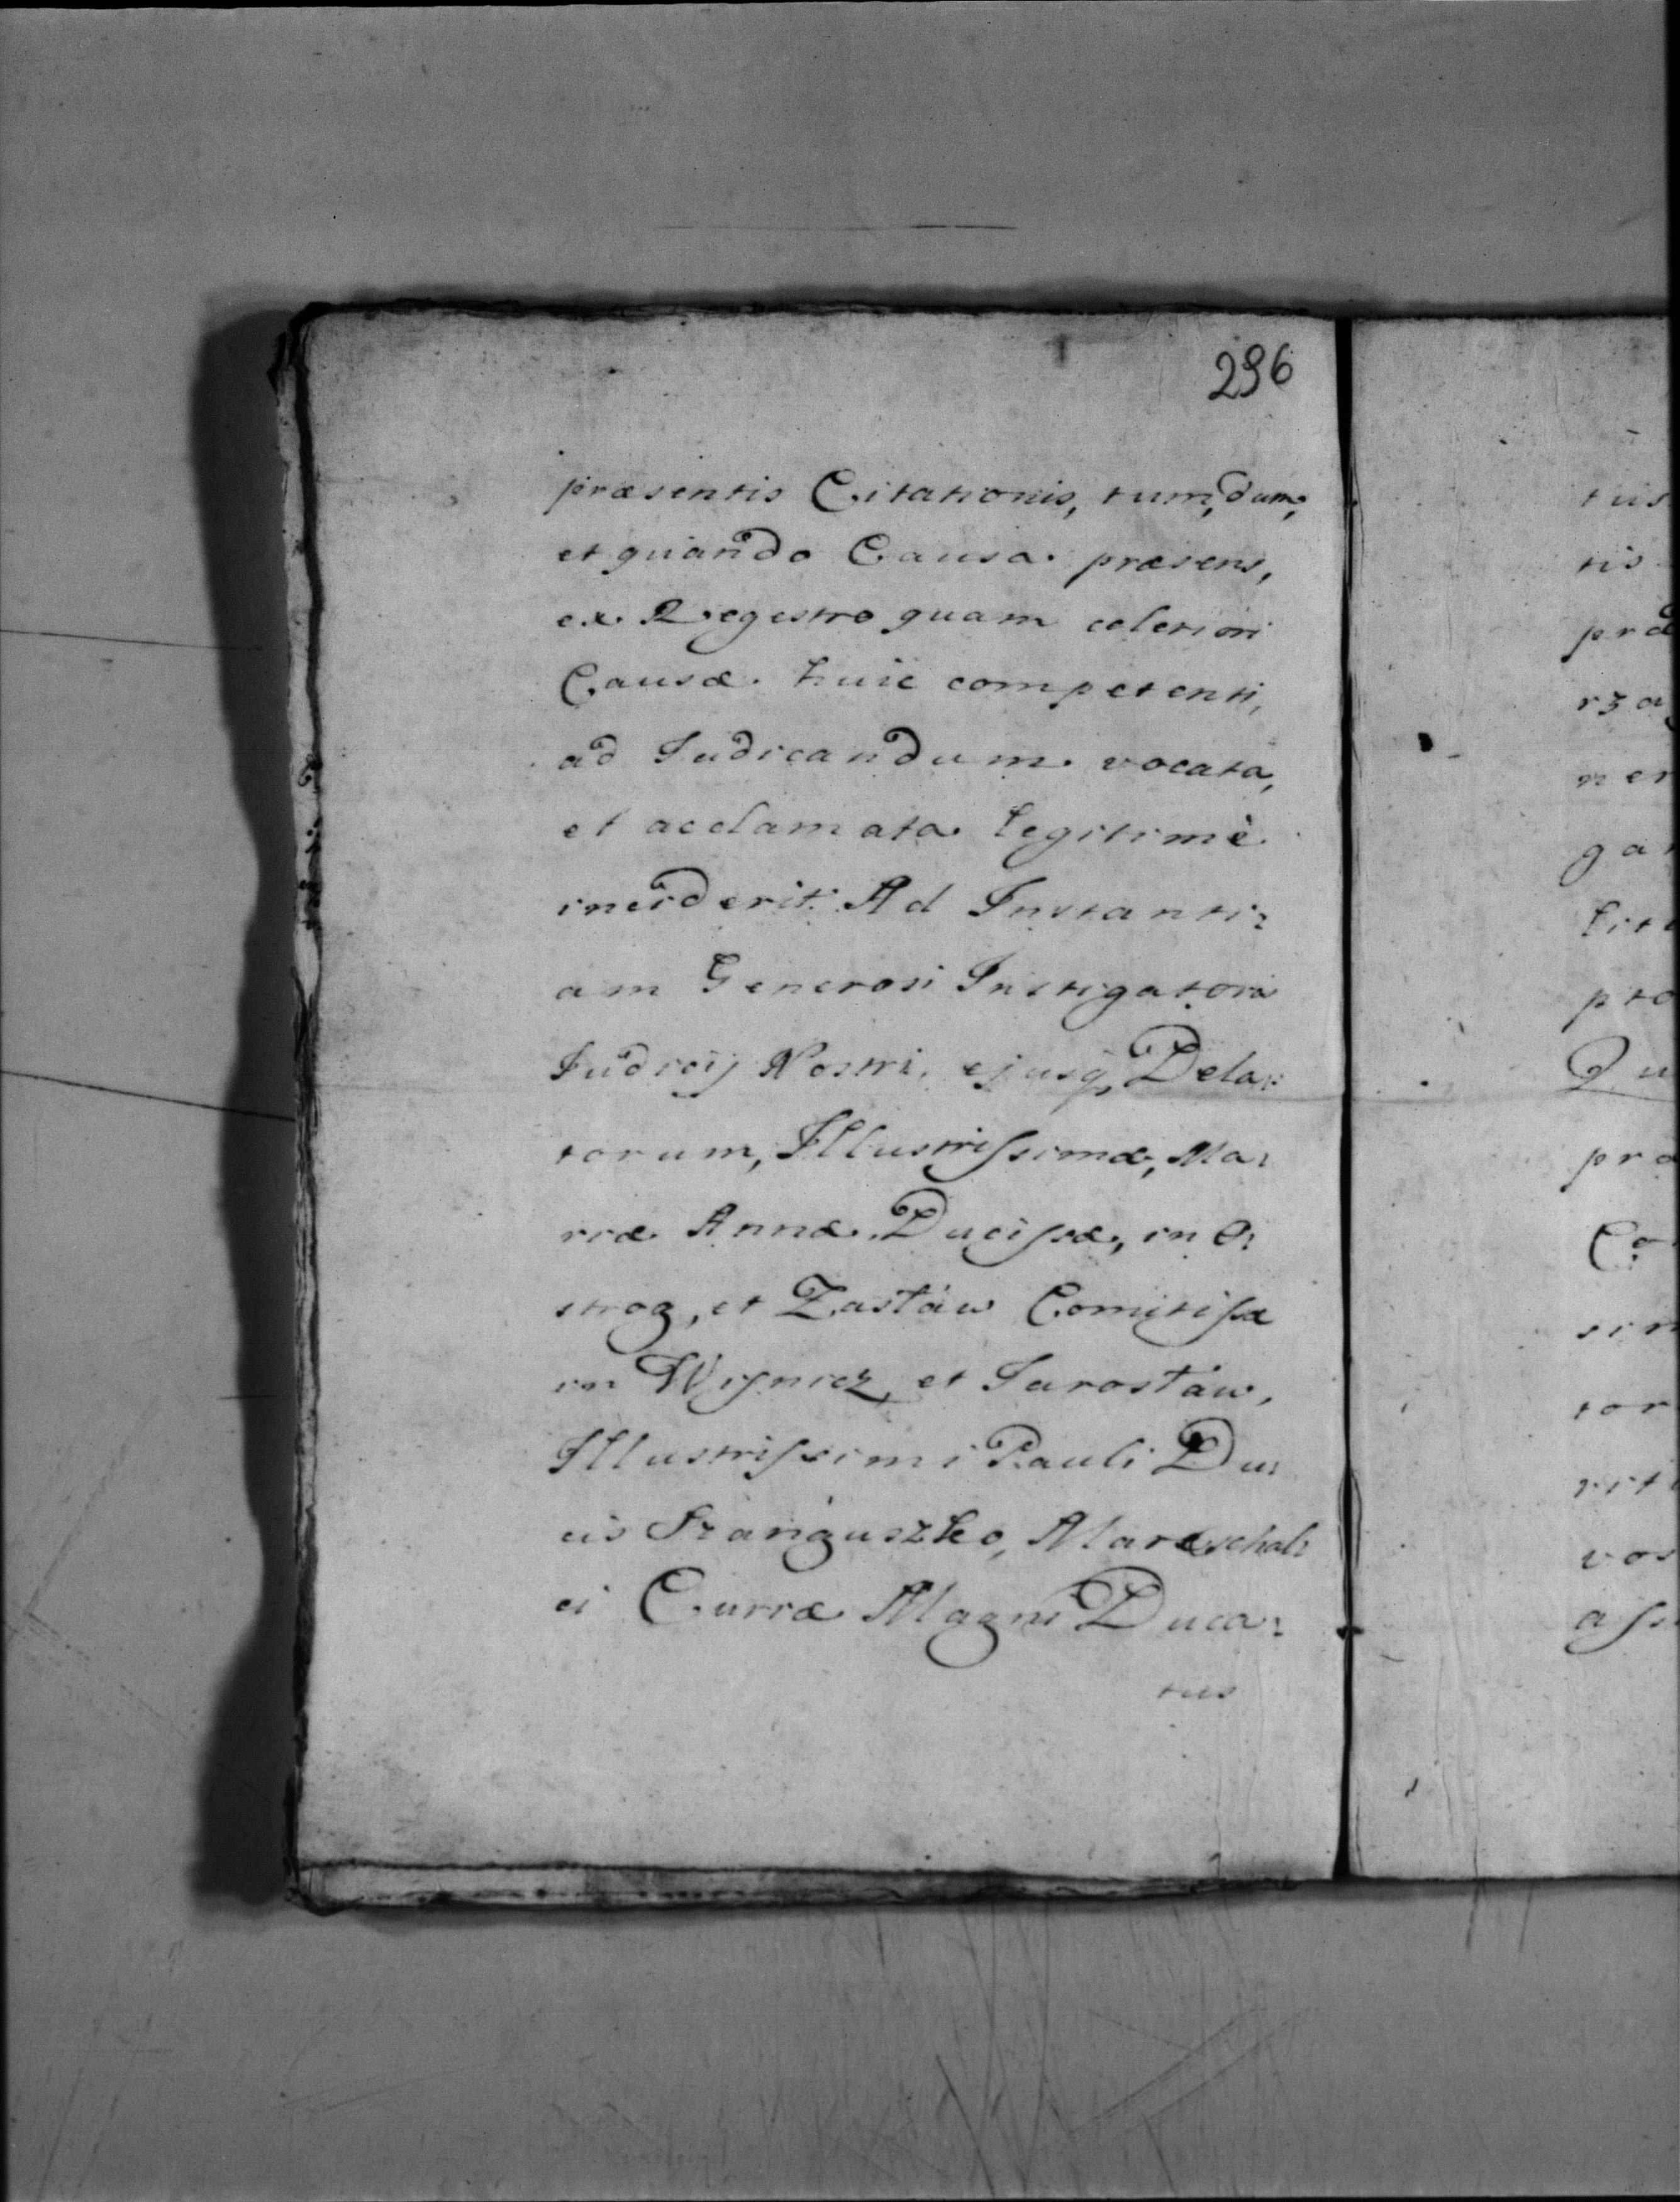 296
præsentis Citationis, tum, dum,
et quando Causa præsens,
ex Regestro quam celeriori
Causæ huic competenti,
ad Judicandum vocata,
et acclamata legitimè
inciderit. Ad Instanti:
am Generosi Instigatoris
Judicij Nostri, ejusq, Dela:
torum, Illustrissimæ, Ma:
riæ Annæ Ducissæ, in O:
strog, et Zasław Comitissæ
in Wisnicz, et Jarosław,
Illustrissimi Pauli Du:
cis Szanguszko, Mareschal:
ci Curiæ Magni Duca:
tus
tus
tis
præ
rza
ner
gar
lit
pto
Qu
pra
Co
sin
tor
rit
vos
ass